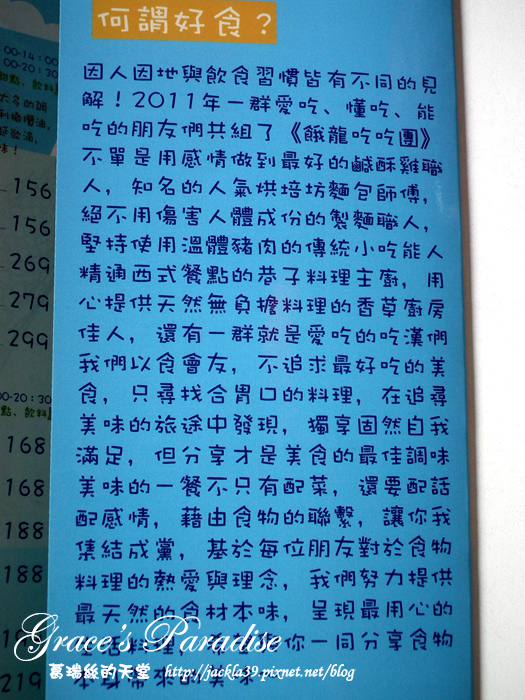 何謂好食？
因人因地與飲食習慣皆有不同的見
解！2011年一群愛吃、懂吃、能
吃的朋友們共組了《餓龍吃吃團》
不單是用感情做到最好的鹹酥雞職
人，知名的人氣烘培坊麵包師傅，
絕不用傷害人體成份的製麵職人，
堅持使用溫體豬肉的傳統小吃能人
精通西式餐點的巷子料理主廚，用
心提供天然無負擔料理的香草廚房
佳人，還有一群就是愛吃的吃漢們
我們以食會友，不追求最好吃的美
食，只尋找合胃口的料理，在追尋
美味的旅途中發現，獨享固然自我
滿足，但分享才是美食的最佳調味
美味的一餐不只有配菜，還要配話
配感情，藉由食物的聯繫，讓你我
集結成黨，基於每位朋友對於食物
料理的熱愛與理念，我們努力提供
最天然的食材本味，呈現最用心的
你一同分享食物
00-14：00
00-20：30
156
156
269
279
299
00-20：30
點、飲料
168
168
188
188
219
Grace's Paradise
葛瑞絲的天堂 http://jackla39.pixnet.net/blog